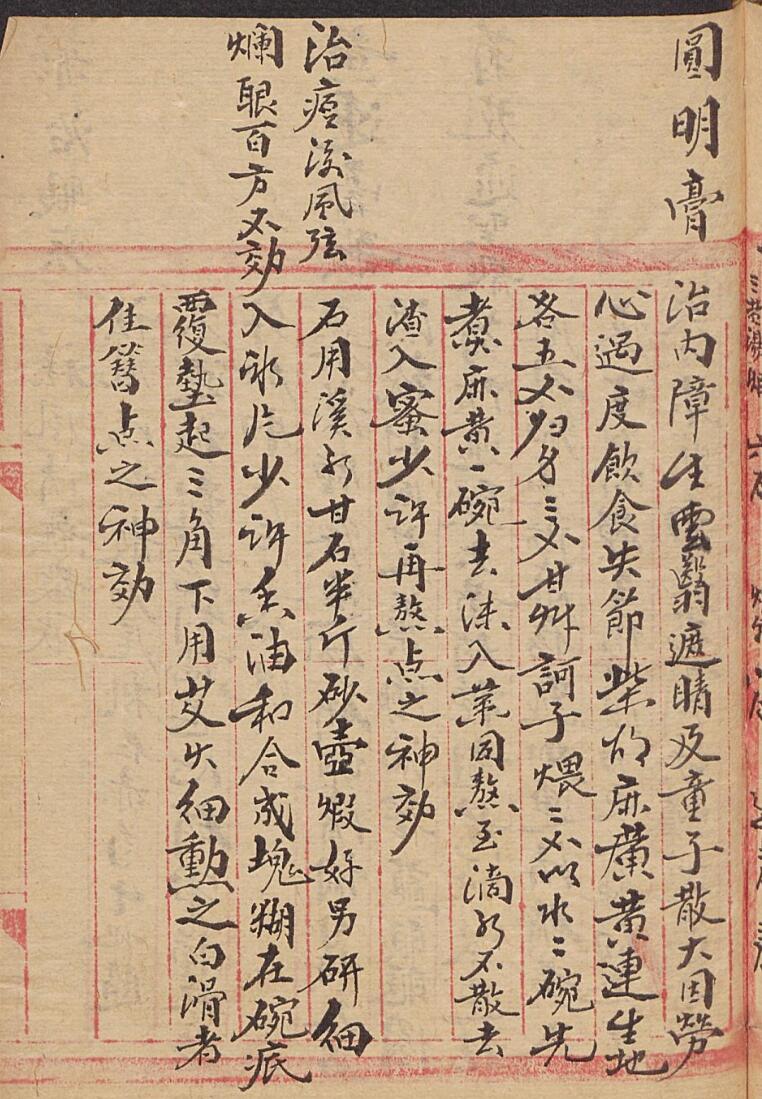 圓明膏
治內障生雲翳遮睛及童子散大因勞
心過度飲食失節柴胡麻黃黃連生地
各五不归身三不甘艸訶子煨二不以水二碗先
煮麻黄一碗去沫入藥同熬至滴水不散去
渣入蜜少许再熬点之神効
治痘後風弦
爛眼百方不効
石用溪水甘石半斤砂壺煅好另研細
入冰片少许香油和合成塊糊在碗底
覆墊起三角下用艾火細勳之白滑者
佳簪点之神効